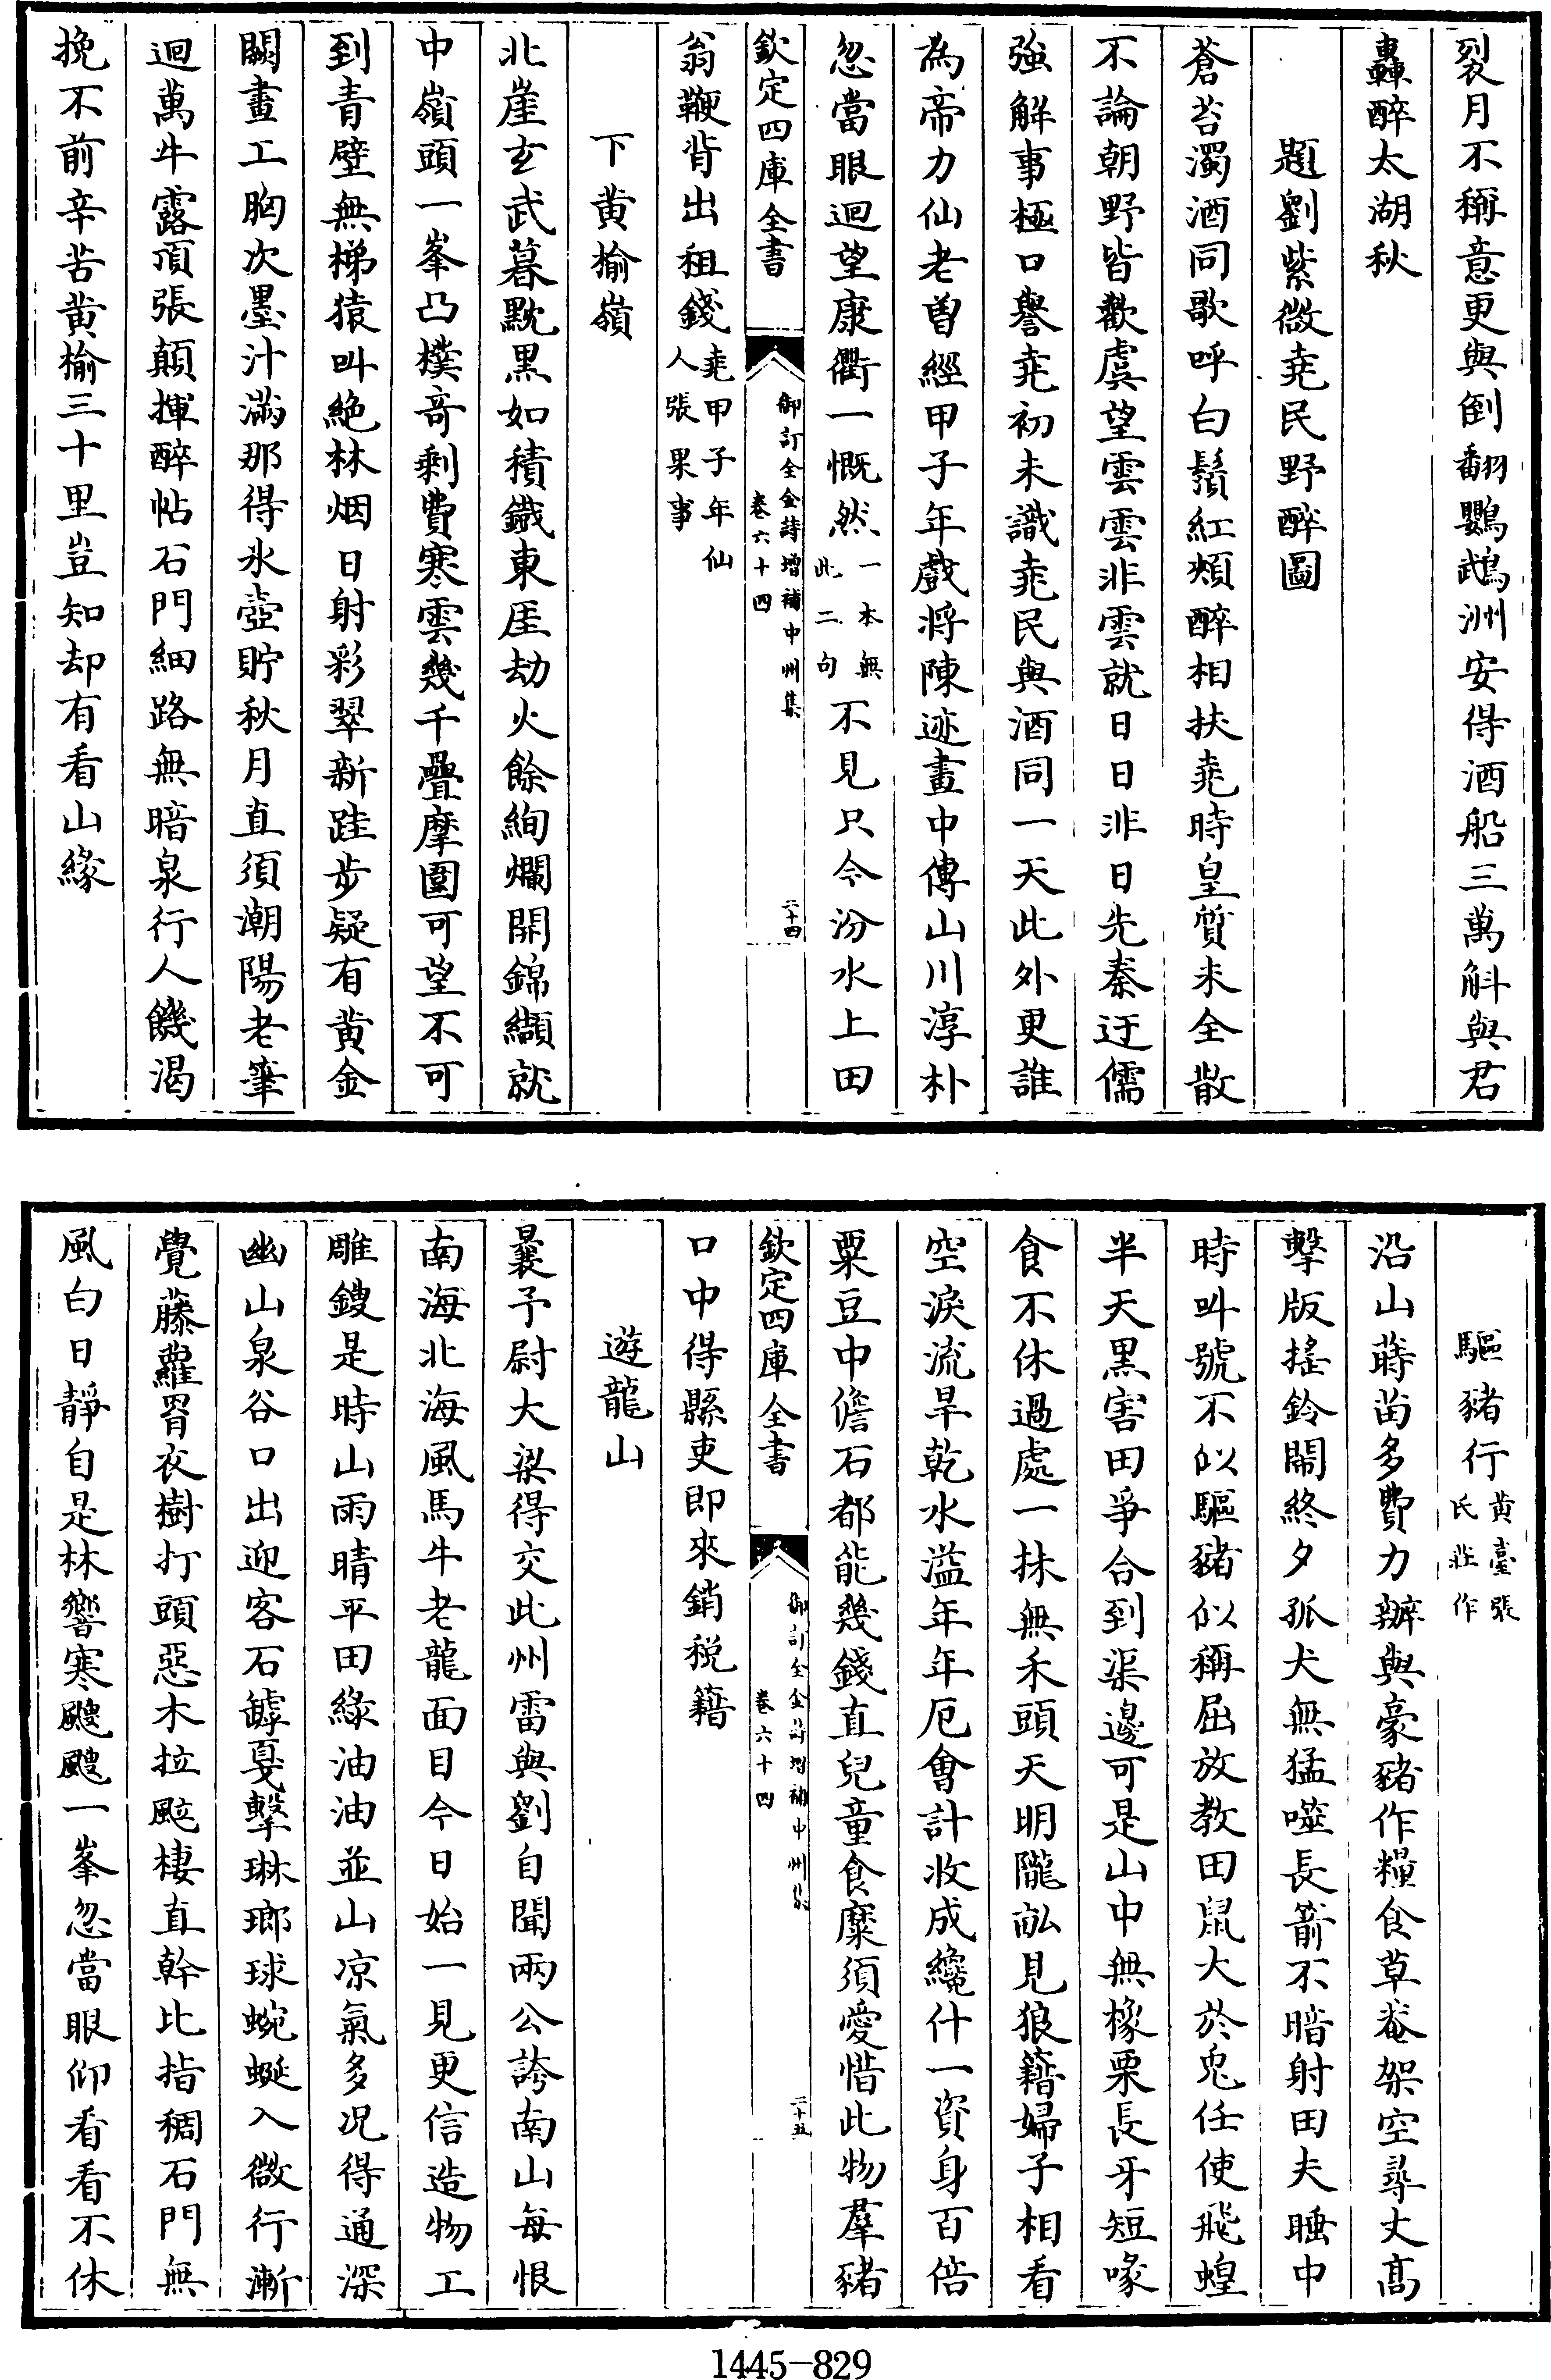 裂月不稱意更與倒翻鸚鵡洲安得酒船三萬斛與君
轟醉太湖秋
題劉紫微堯民野醉圖
蒼苔濁酒同歌呼白鬚紅頰醉相扶堯時皇質未全散
不論朝野皆歡虞望雲雲非雲就日日非日先秦迂儒
強解事極口譽堯初未識堯民與酒同一天此外更誰
為帝力仙老曽經甲子年戲將陳迹畫中傳山川淳朴
忽當眼迴望康衢一慨然一本無此二句不見只今汾水上田
欽定四庫全書
御訂全金詩增補中州集
卷六十四
二十四
翁鞭背出租錢堯甲子年仙人張果事
下黄榆嶺
北崖玄武暮黙黒如積鐡東厓劫火餘絢爛開錦纈就
中嶺頭一峯凸樸竒剩費寒雲幾千疊摩圍可望不可
到青壁無梯猿叫絶林烟日射彩翠新跬歩疑有黄金
闕畫工胸次墨汁滿那得氷壺貯秋月直須潮陽老筆
迴萬牛露頂張顛揮醉帖石門細路無暗泉行人饑渴
挽不前辛苦黄榆三十里豈知却有看山緣
驅豬行黄臺張氏莊作
沿山蒔苗多費力辦與豪豬作糧食草菴架空尋丈髙
擊版搖鈴閙終夕孤犬無猛噬長箭不暗射田夫睡中
時叫號不似驅豬似稱屈放教田鼠大於兎任使飛蝗
半天黒害田爭合到渠邊可是山中無橡栗長牙短喙
食不休過處一抹無禾頭天明隴畆見狼籍婦子相看
空淚流旱乾水溢年年厄會計收成纔什一資身百倍
粟豆中儋石都能幾錢直兒童食糜須愛惜此物羣豬
欽定四庫全書
御訂全金詩增補中州集
卷六十四
二十五
口中得縣吏即來銷税籍
遊龍山
曩予尉大梁得交此州雷與劉自聞兩公誇南山每恨
南海北海風馬牛老龍面目今日始一見更信造物工
雕鎪是時山雨晴平田緑油油並山凉氣多况得通深
幽山泉谷口出迎客石罅戛擊琳瑯球蜿蜒入微行漸
覺藤蘿罥衣樹打頭惡木拉颭棲直幹比指稠石門無
風白日靜自是林響寒颼颼一峯忽當眼仰看看不休
1445-829